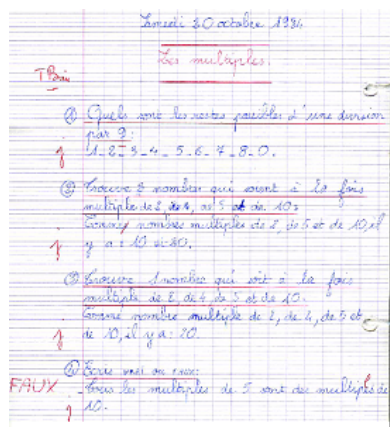 Samedi 20 octobre 1984
Les multiples.
T Bien
① Quels sont les restes possibles d'une division
par 9:
1_2_3_4_5_6_7_8_0.
② Trouve 2 nombres qui soient à la fois
multiple de 2, de 5 et de 10:
Comme nombres multiples de 2, de 5 et de 10, il
y a : 10 et 20.
③ Trouve 1 nombre qui soit à la fois
multiple de 2, de 4 de 5 et de 10.
Comme nombre multiple de 2, de 4, de 5 et
de 10, il y a : 20.
④ Ecris vrai ou faux:
FAUX Tous les multiples de 5 sont des multiples de
10.